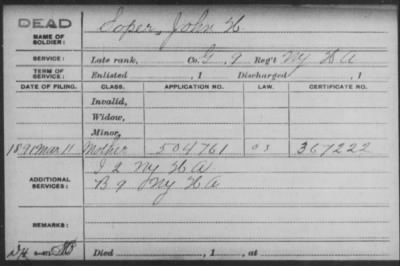 DEAD
NAME OF SOLDIER: Soper, John H
SERVICE: Late rank, Co. G 9 Reg't Ny H A
TERM OF SERVICE: Enlisted , 1 Discharged , 1
DATE OF FILING. CLASS. APPLICATION NO. LAW. CERTIFICATE NO.
Invalid,
Widow,
Minor,
1891 Mar 11 Mother 504761 367222
ADDITIONAL SERVICES: I 2 Ny H A
B 9 Ny H A
REMARKS:
Died , 1 , at